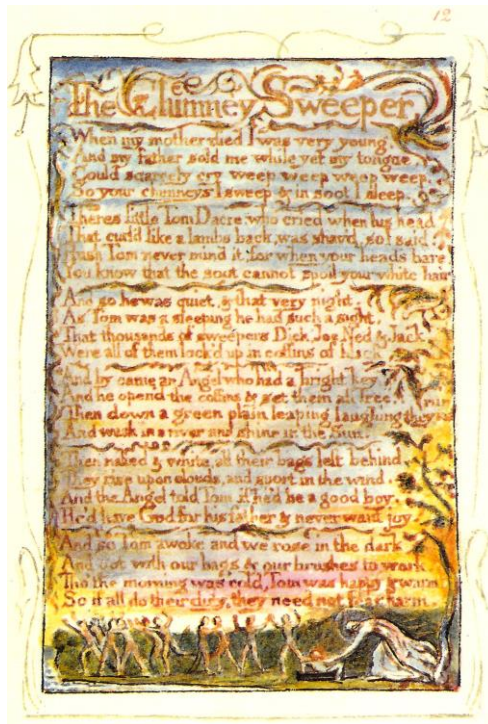 12
The Chimney Sweeper
When my mother died I was very young,
And my father sold me while yet my tongue,
Could scarcely cry weep weep weep weep,
So your chimneys I sweep & in soot I sleep.
Theres little Tom Dacre, who cried when his head
That curld like a lambs back, was shav'd, so I said.
Hush Tom never mind it, for when your heads bare,
You know that the soot cannot spoil your white hair
And so he was quiet, & that very night,
As Tom was a sleeping he had such a sight,
That thousands of sweepers Dick, Joe Ned & Jack
Were all of them lock'd up in coffins of black
And by came an Angel who had a bright key
And he open'd the coffins & set them all free.
Then down a green plain leaping laughing they run
And wash in a river and shine in the Sun.
Then naked & white, all their bags left behind,
They rise upon clouds, and sport in the wind.
And the Angel told Tom, if he'd be a good boy,
He'd have God for his father & never want joy
And so Tom awoke and we rose in the dark
And got with our bags & our brushes to work
Tho' the morning was cold, Tom was happy & warm
So if all do their duty, they need not fear harm.